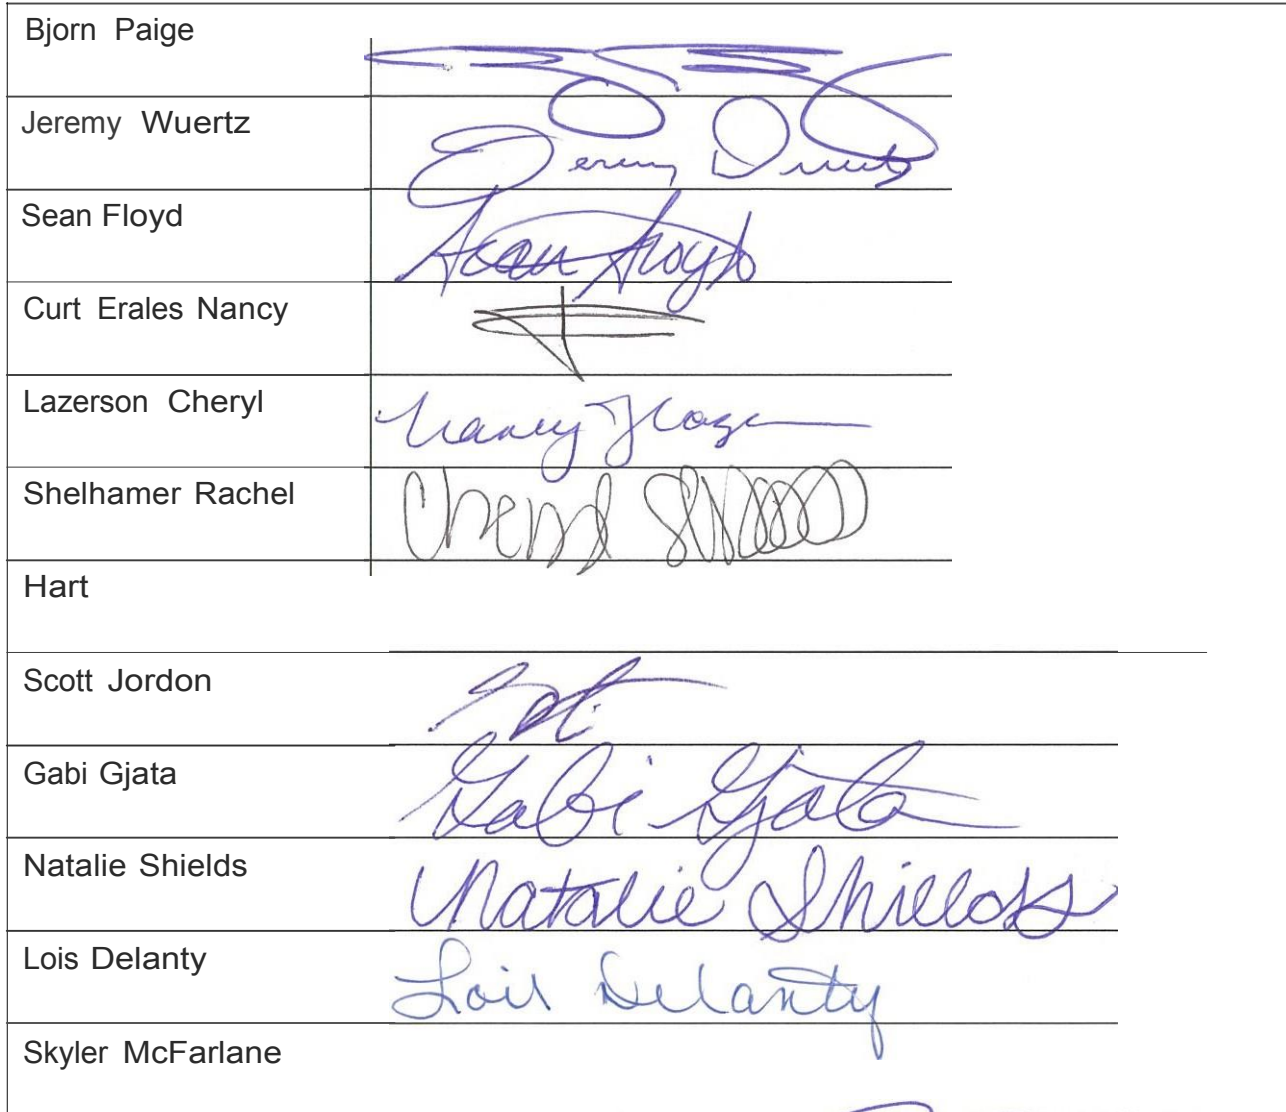 Bjorn Paige
Jeremy Wuertz Jeremy Wuertz
Sean Floyd Sean Floyd
Curt Erales Nancy
Lazerson Cheryl Nancy
Shelhamer Rachel Cheryl
Hart
Scott Jordon
Gabi Gjata Gabi Gjata
Natalie Shields Natalie Shields
Lois Delanty Lois Delanty
Skyler McFarlane